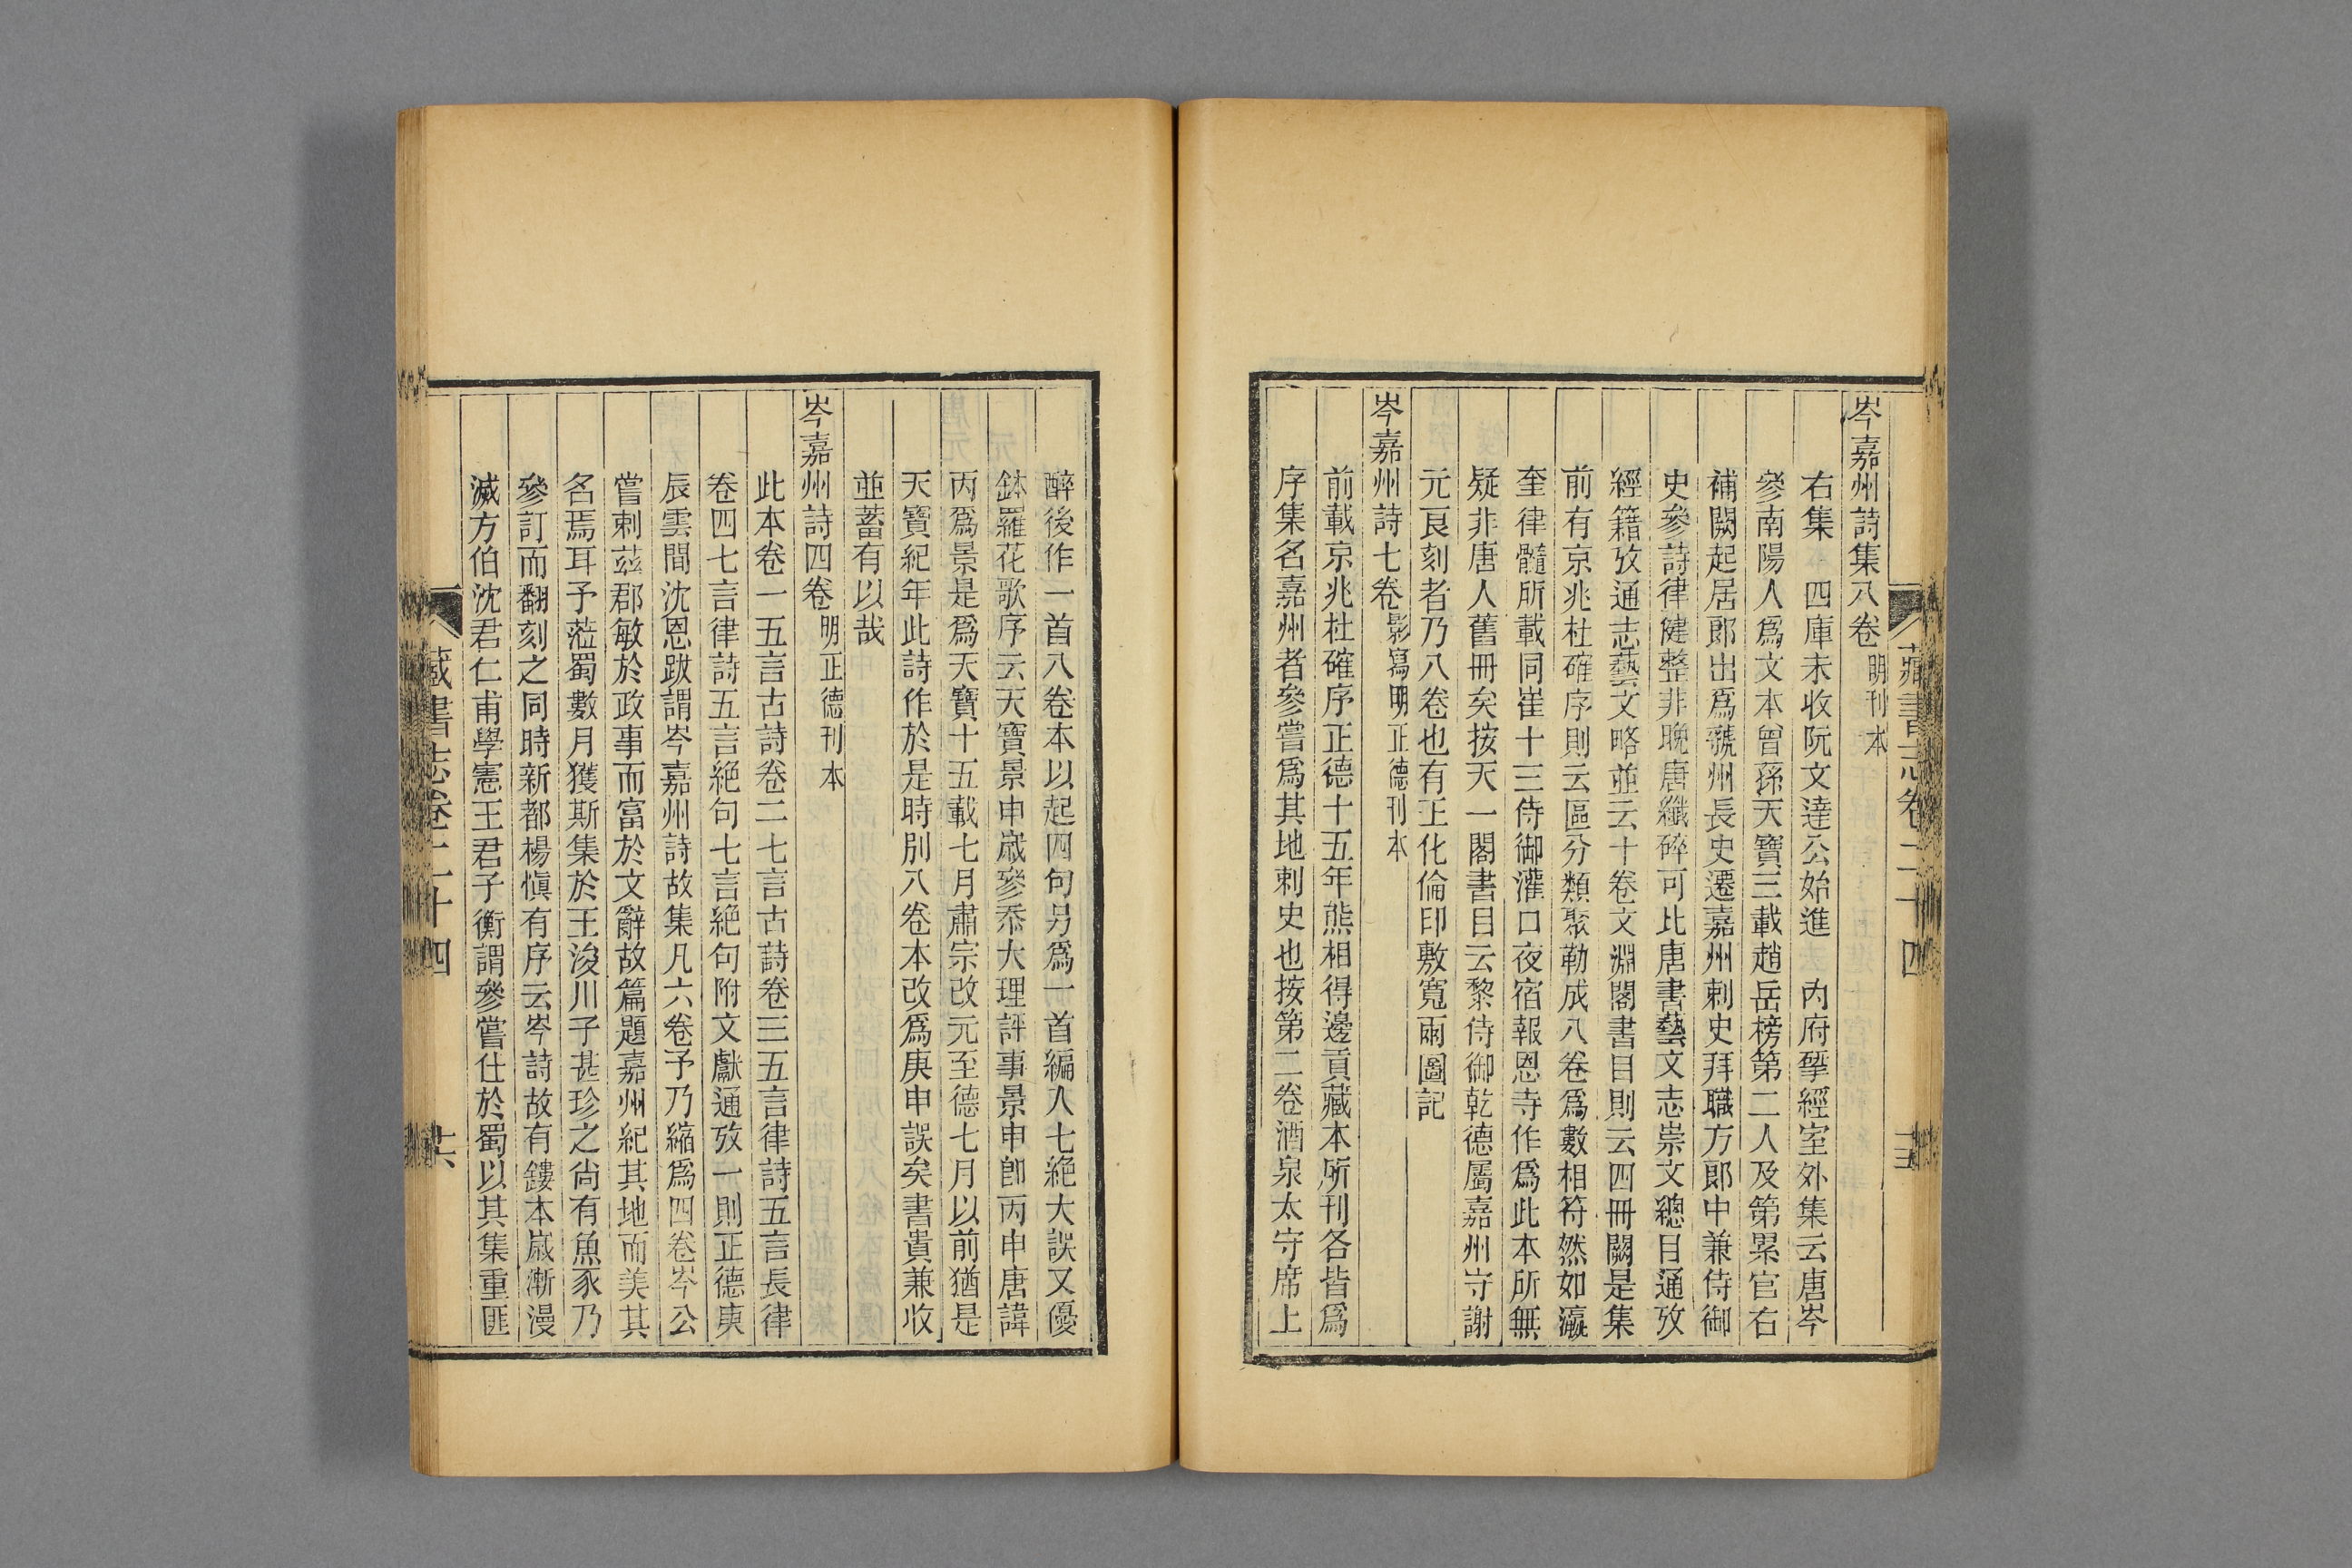 岑嘉州詩集八卷明刊本
右集 四庫未收阮文達公始進 內府揅經室外集云唐岑
參南陽人爲文本曾孫天寶三載趙岳榜第二人及第累官右
補闕起居郎出爲虢州長史遷嘉州刺史拜職方郎中兼侍御
史參詩律健整非晚唐纖碎可比唐書藝文志崇文總目通攷
經籍攷通志藝文略並云十卷文淵閣書目則云四冊闕是集
前有京兆杜確序則云區分類聚勒成八卷爲數相符然如瀛
奎律髓所載同崔十三侍御灌口夜宿報恩寺作爲此本所無
疑非唐人舊冊矣按天一閣書目云黎侍御乾德屬嘉州守謝
元良刻者乃八卷也有王化倫印敷寬兩圖記
岑嘉州詩七卷影寫明正德刊本
前載京兆杜確序正德十五年熊相得邊貢藏本所刊各皆爲
序集名嘉州者參嘗爲其地刺史也按第二卷酒泉太守席上
醉後作一首八卷本以起四句另爲一首編入七絶大誤又優
鉢羅花歌序云天寶景申歲參忝大理評事景申卽丙申唐諱
丙爲景是爲天寶十五載七月肅宗改元至德七月以前猶是
天寶紀年此詩作於是時別八卷本改爲庚申誤矣書貴兼收
並蓄有以哉
岑嘉州詩四卷明正德刊本
此本卷一五言古詩卷二七言古詩卷三五言律詩五言長律
卷四七言律詩五言絶句七言絶句附文獻通攷一則正德庚
辰雲間沈恩跋謂岑嘉州詩故集凡六卷予乃縮爲四卷岑公
嘗刺茲郡敏於政事而富於文辭故篇題嘉州紀其地而美其
名焉耳予蒞蜀數月獲斯集於王浚川子甚珍之尙有魚豕乃
參訂而翻刻之同時新都楊愼有序云岑詩故有鏤本歲漸漫
滅方伯沈君仁甫學憲王君子衡謂參嘗仕於蜀以其集重匪
藏書志卷二十四